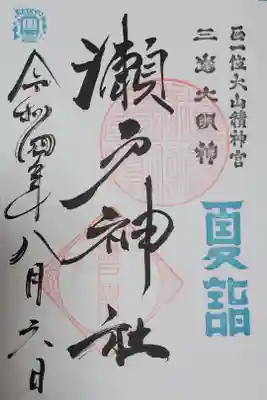 正一位大山積神宮
三嶌大明神
夏詣
瀬戸神社
令和四年八月六日
KEIKYU